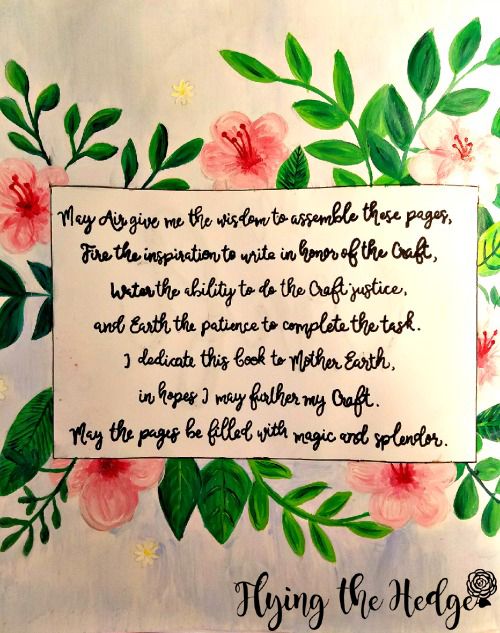 May Air give me the wisdom to assemble these pages,
Fire the inspiration to write in honor of the Craft,
Water the ability to do the Craft justice,
and Earth the patience to complete the task.
I dedicate this book to Mother Earth,
in hopes I may further my Craft.
May the pages be filled with magic and splendor.
Flying the Hedge